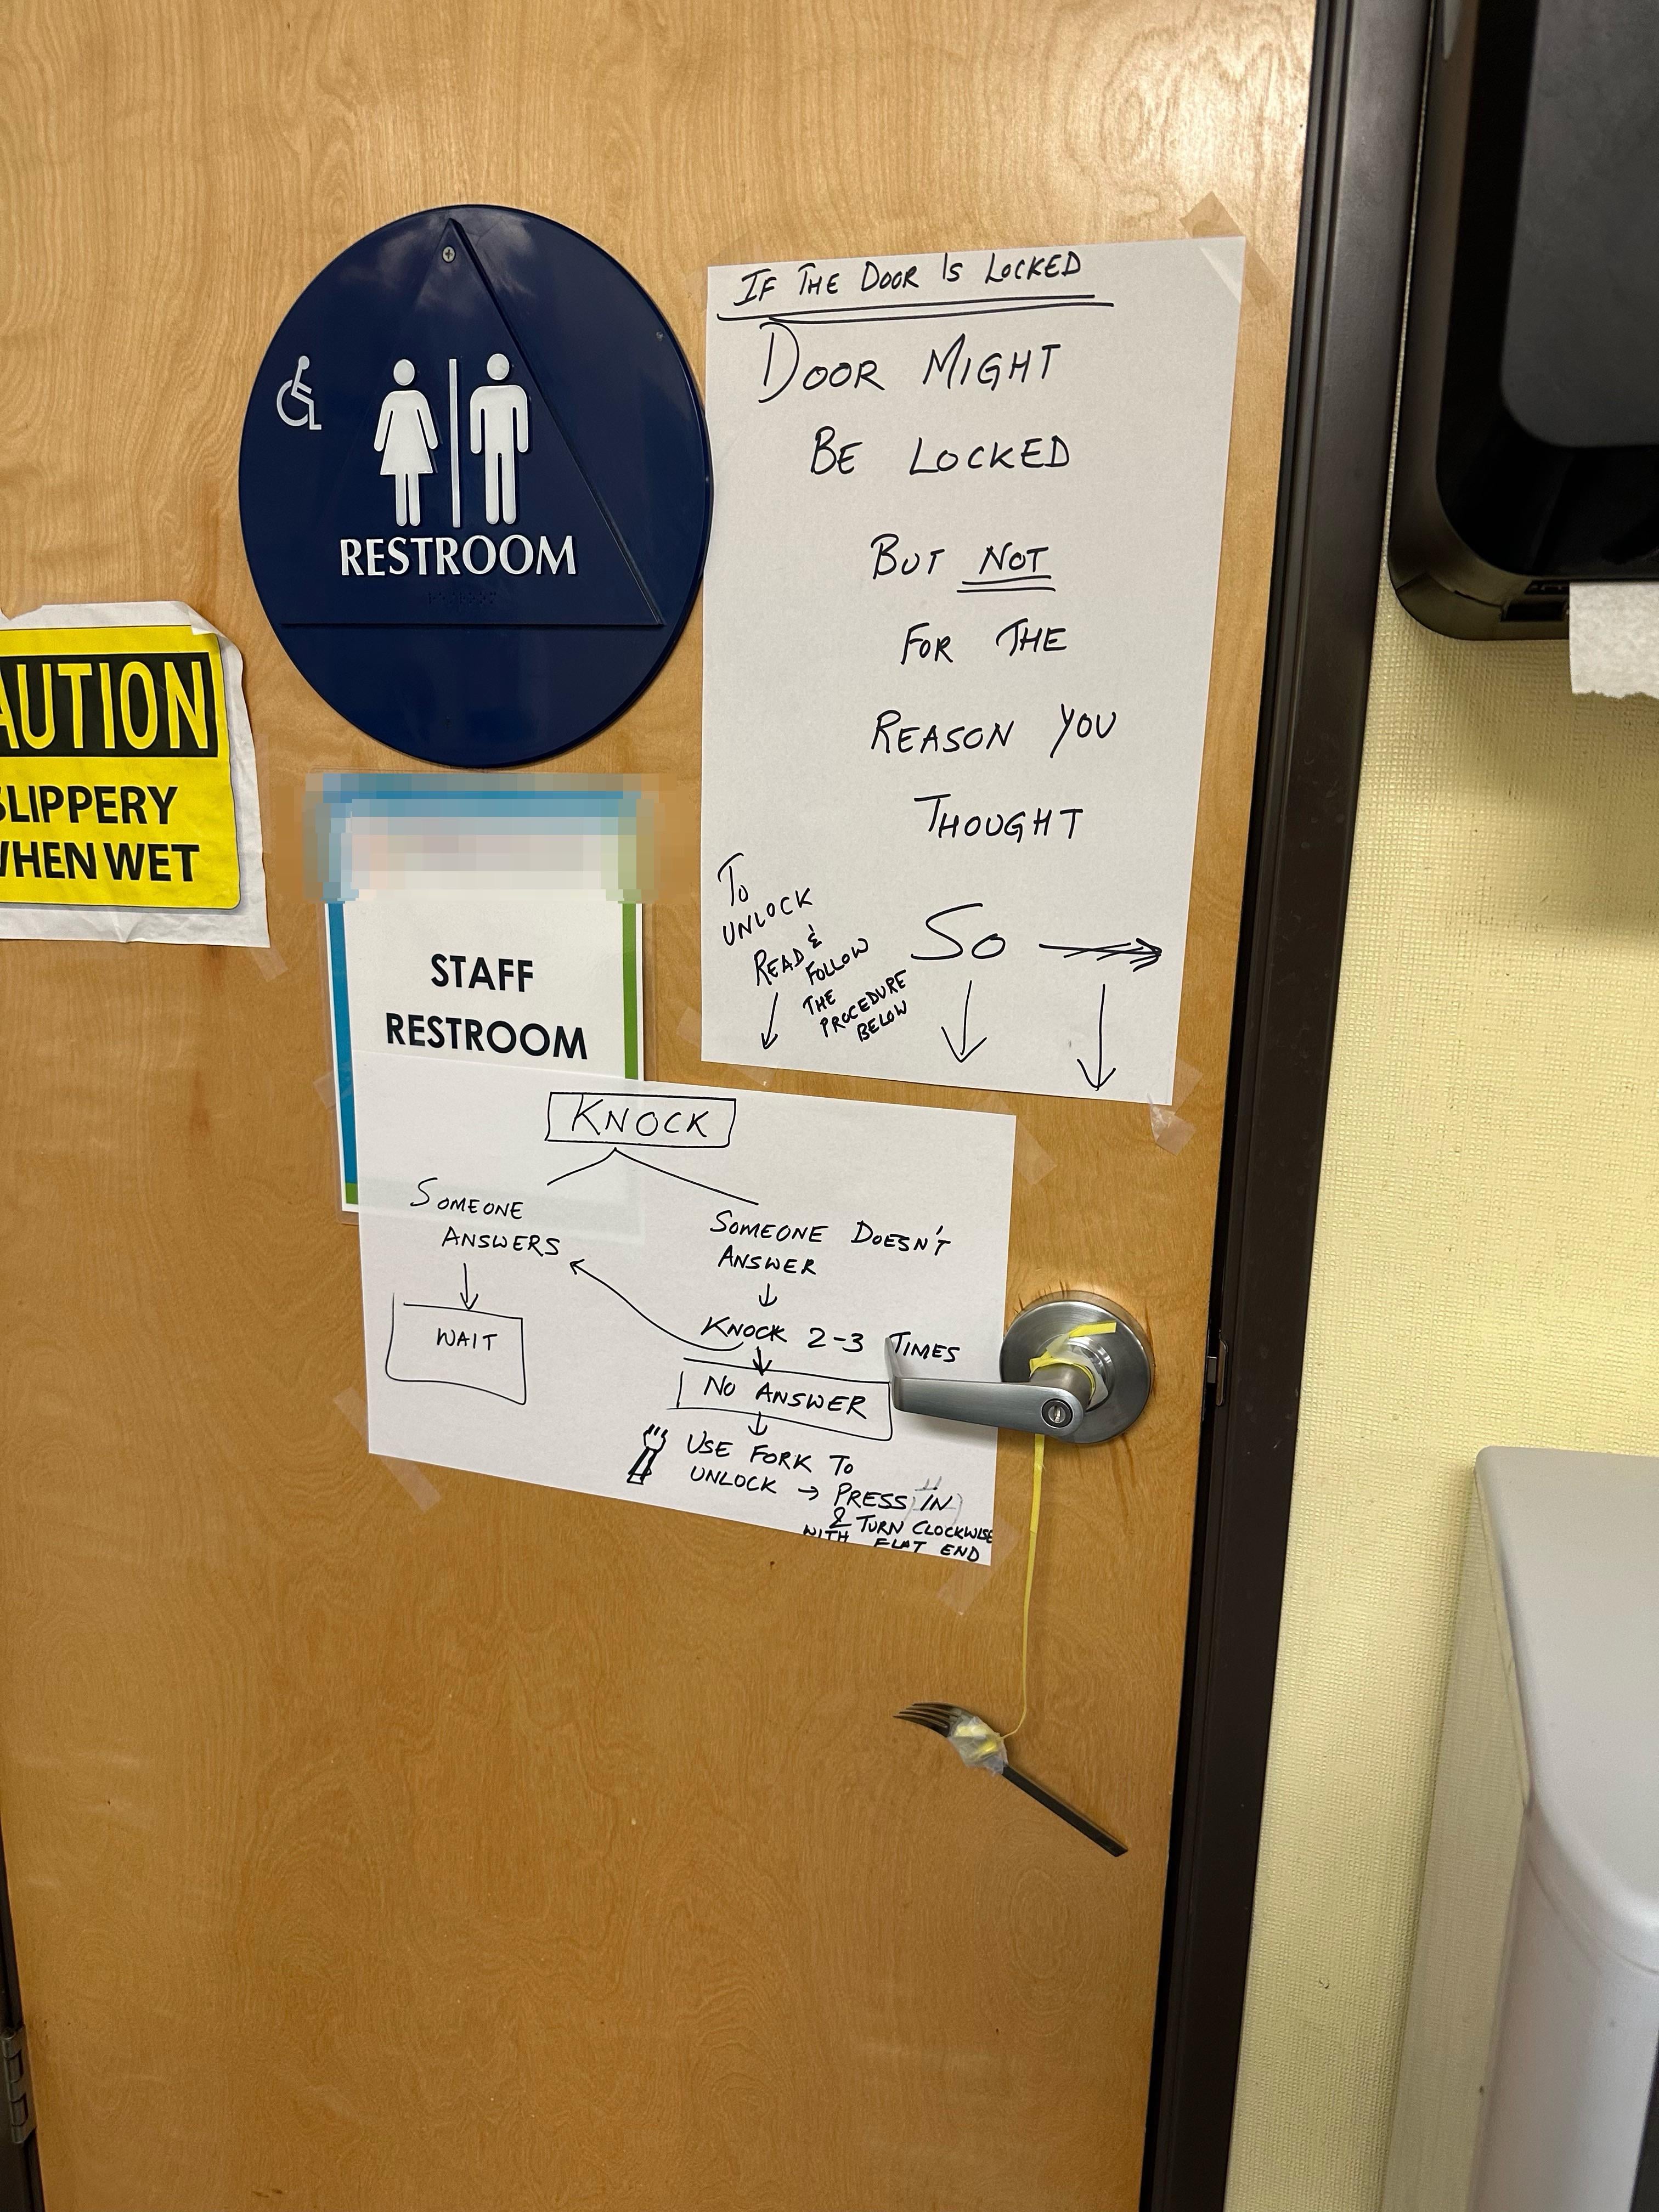 IF THE DOOR IS LOCKED
DOOR MIGHT
BE LOCKED
BUT NOT
FOR THE
REASON YOU
THOUGHT
SO
TO
UNLOCK
READ &
FOLLOW
THE
PROCEDURE
BELOW
RESTROOM
AUTION
SLIPPERY
WHEN WET
STAFF
RESTROOM
KNOCK
SOMEONE
ANSWERS
WAIT
SOMEONE DOESN'T
ANSWER
KNOCK 2-3 TIMES
NO ANSWER
USE FORK TO
UNLOCK → PRESS IN
& TURN CLOCKWISE
WITH FLAT END